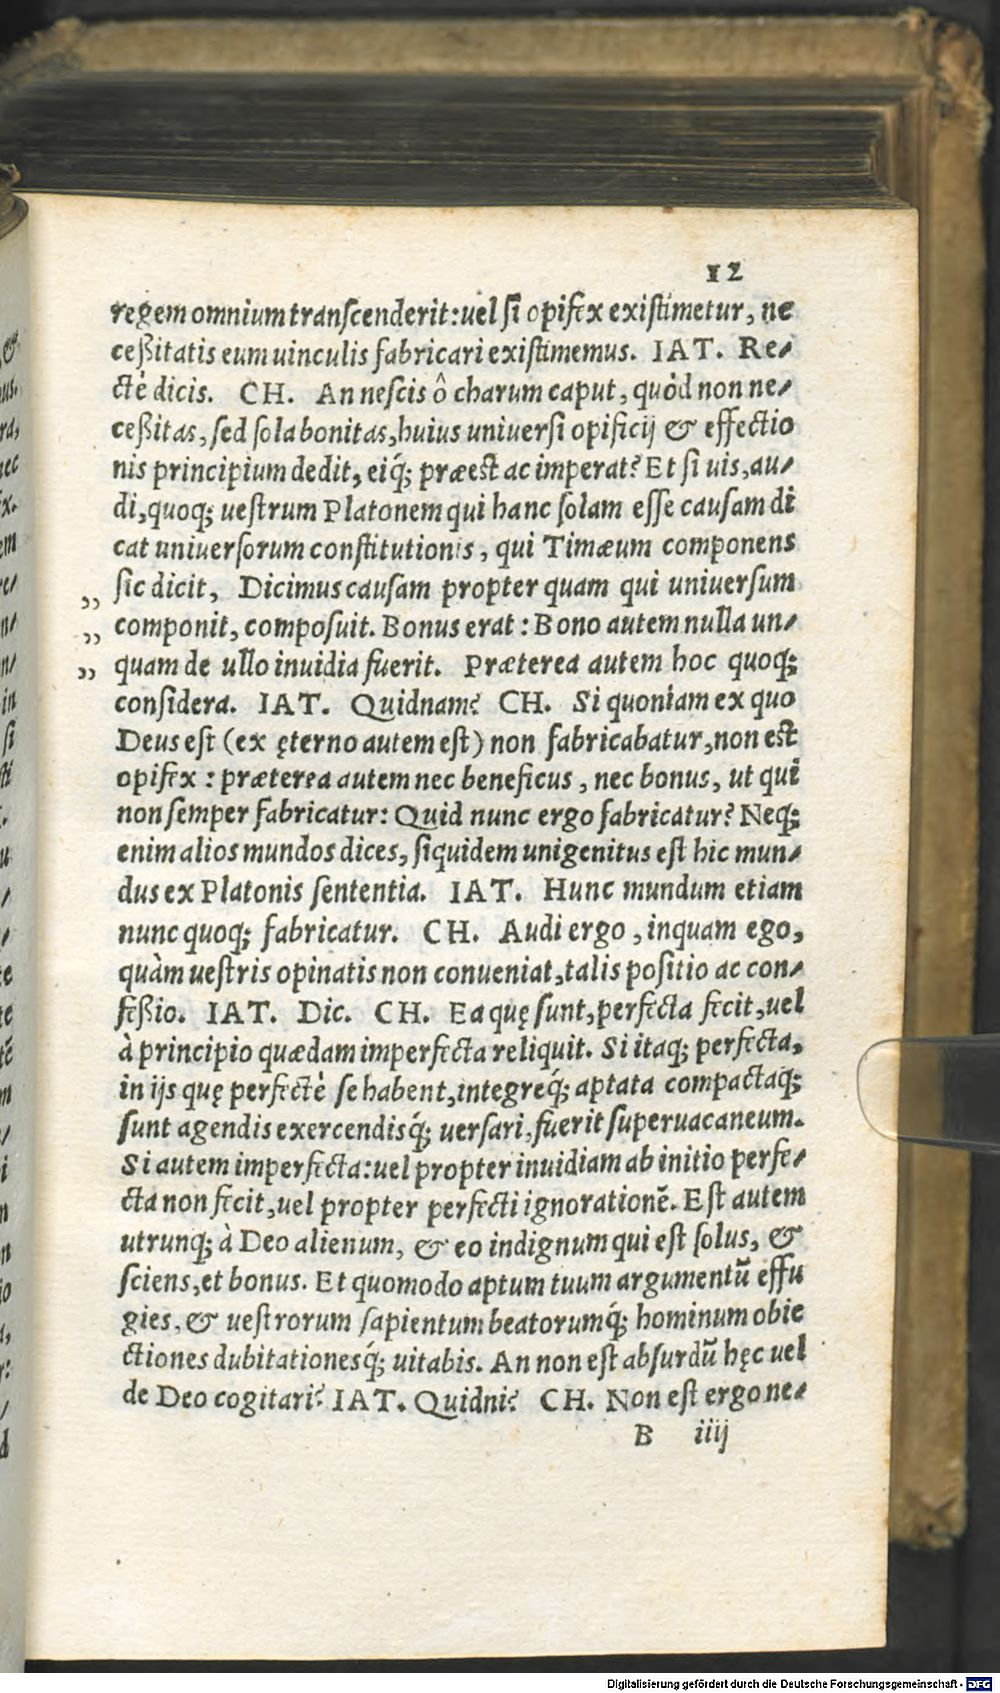 12
regem omnium transcenderit: uel si opifex existimetur, ne
ceßitatis eum uinculis fabricari existimemus. IAT. Re⸗
ctè dicis. CH. An nescis ô charum caput, quòd non ne⸗
ceßitas, sed sola bonitas, huius uniuersi opificij & effectio
nis principium dedit, eiq́; præest ac imperat? Et si uis, au⸗
di, quoq; uestrum Platonem qui hanc solam esse causam di
cat uniuersorum constitutionis, qui Timæum componens
sic dicit, Dicimus causam propter quam qui uniuersum
,, componit, composuit. Bonus erat: Bono autem nulla un⸗
,, quam de ullo inuidia fuerit. Præterea autem hoc quoq;
,, considera. IAT. Quidnam? CH. Si quoniam ex quo
Deus est (ex ęterno autem est) non fabricabatur, non est
opifex: præterea autem nec beneficus, nec bonus, ut qui
non semper fabricatur: Quid nunc ergo fabricatur? Neq;
enim alios mundos dices, siquidem unigenitus est hic mun⸗
dus ex Platonis sententia. IAT. Hunc mundum etiam
nunc quoq; fabricatur. CH. Audi ergo, inquam ego,
quàm uestris opinatis non conueniat, talis positio ac con⸗
feßio. IAT. Dic. CH. Ea quę sunt, perfecta fecit, uel
à principio quædam imperfecta reliquit. Si itaq; perfecta,
in ijs quę perfectè se habent, integreq́; aptata compactaq́;
sunt agendis exercendisq́; uersari, fuerit superuacaneum.
Si autem imperfecta: uel propter inuidiam ab initio perfe⸗
cta non fecit, uel propter perfecti ignorationẽ. Est autem
utrunq; à Deo alienum, & eo indignum qui est solus, &
sciens, et bonus. Et quomodo aptum tuum argumentũ effu
gies, & uestrorum sapientum beatorumq́; hominum obie
ctiones dubitationesq́; uitabis. An non est absurdũ hęc uel
de Deo cogitari? IAT. Quidni? CH. Non est ergo ne⸗
B iiij
Digitalisierung gefördert durch die Deutsche Forschungsgemeinschaft - DFG